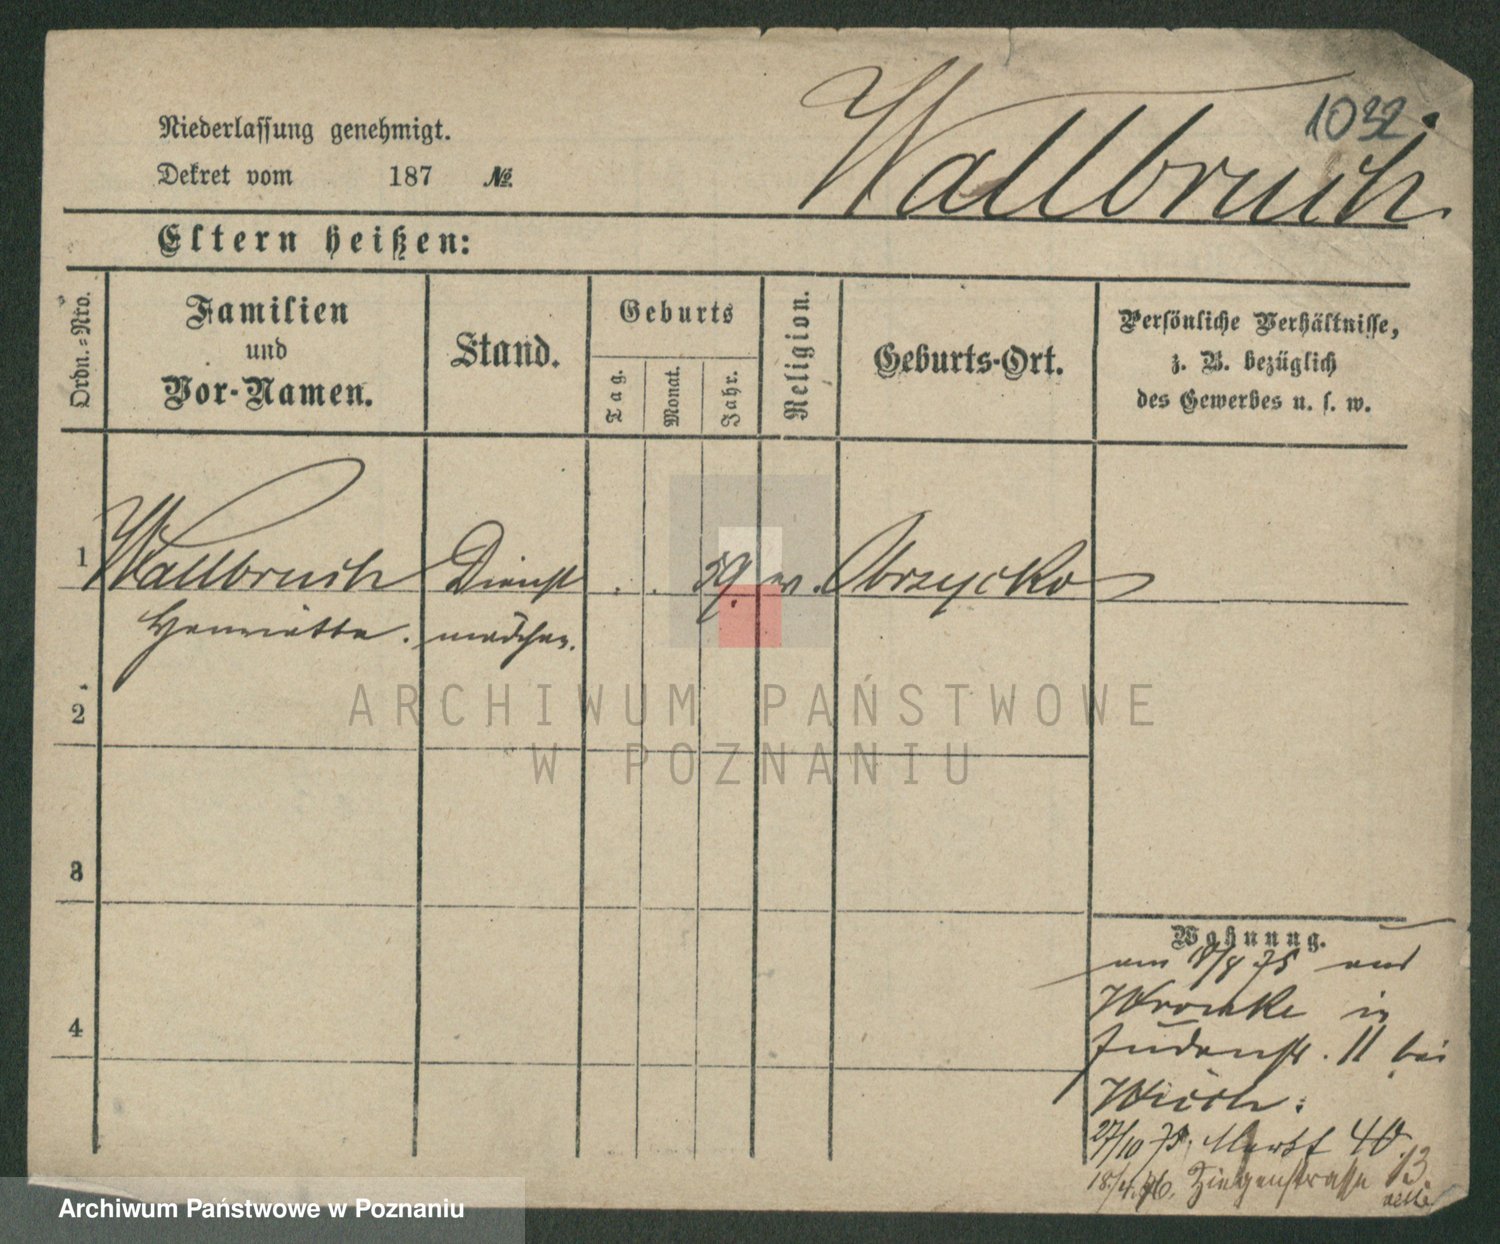 1032
Wallbruch
Niederlassung genehmigt.
Dekret vom 187 №
Eltern heißen:
Ordn.-Nro.
Familien
und
Vor-Namen.
Stand.
Geburts
Tag.
Monat.
Jahr.
Religion.
Geburts-Ort.
Persönliche Verhältnisse,
z. B. bezüglich
des Gewerbes u. s. w.
1 Wallbruch Dienst . . 59. m. Obrzycko
Henriette. mädchen.
2
3
4
Wohnung.
am 8/4 75 aus
Wronke in
Judenstr. 11 bei
27/10 75. Markt 40.
18/4. 76. Ziegenstrasse 13
ARCHIWUM PAŃSTWOWE
W POZNANIU
Archiwum Państwowe w Poznaniu